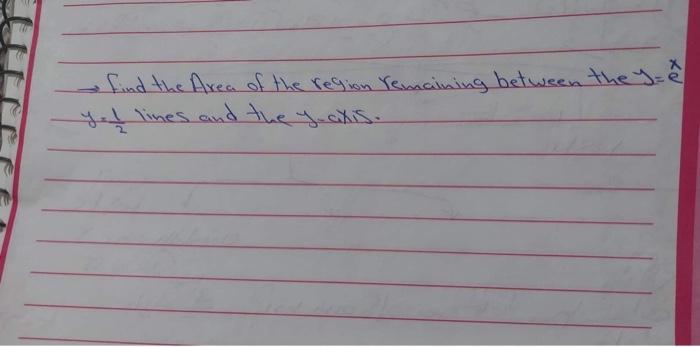 → find the Area of the region remaining between the y=eˣ
y=1/2 lines and the y-axis.